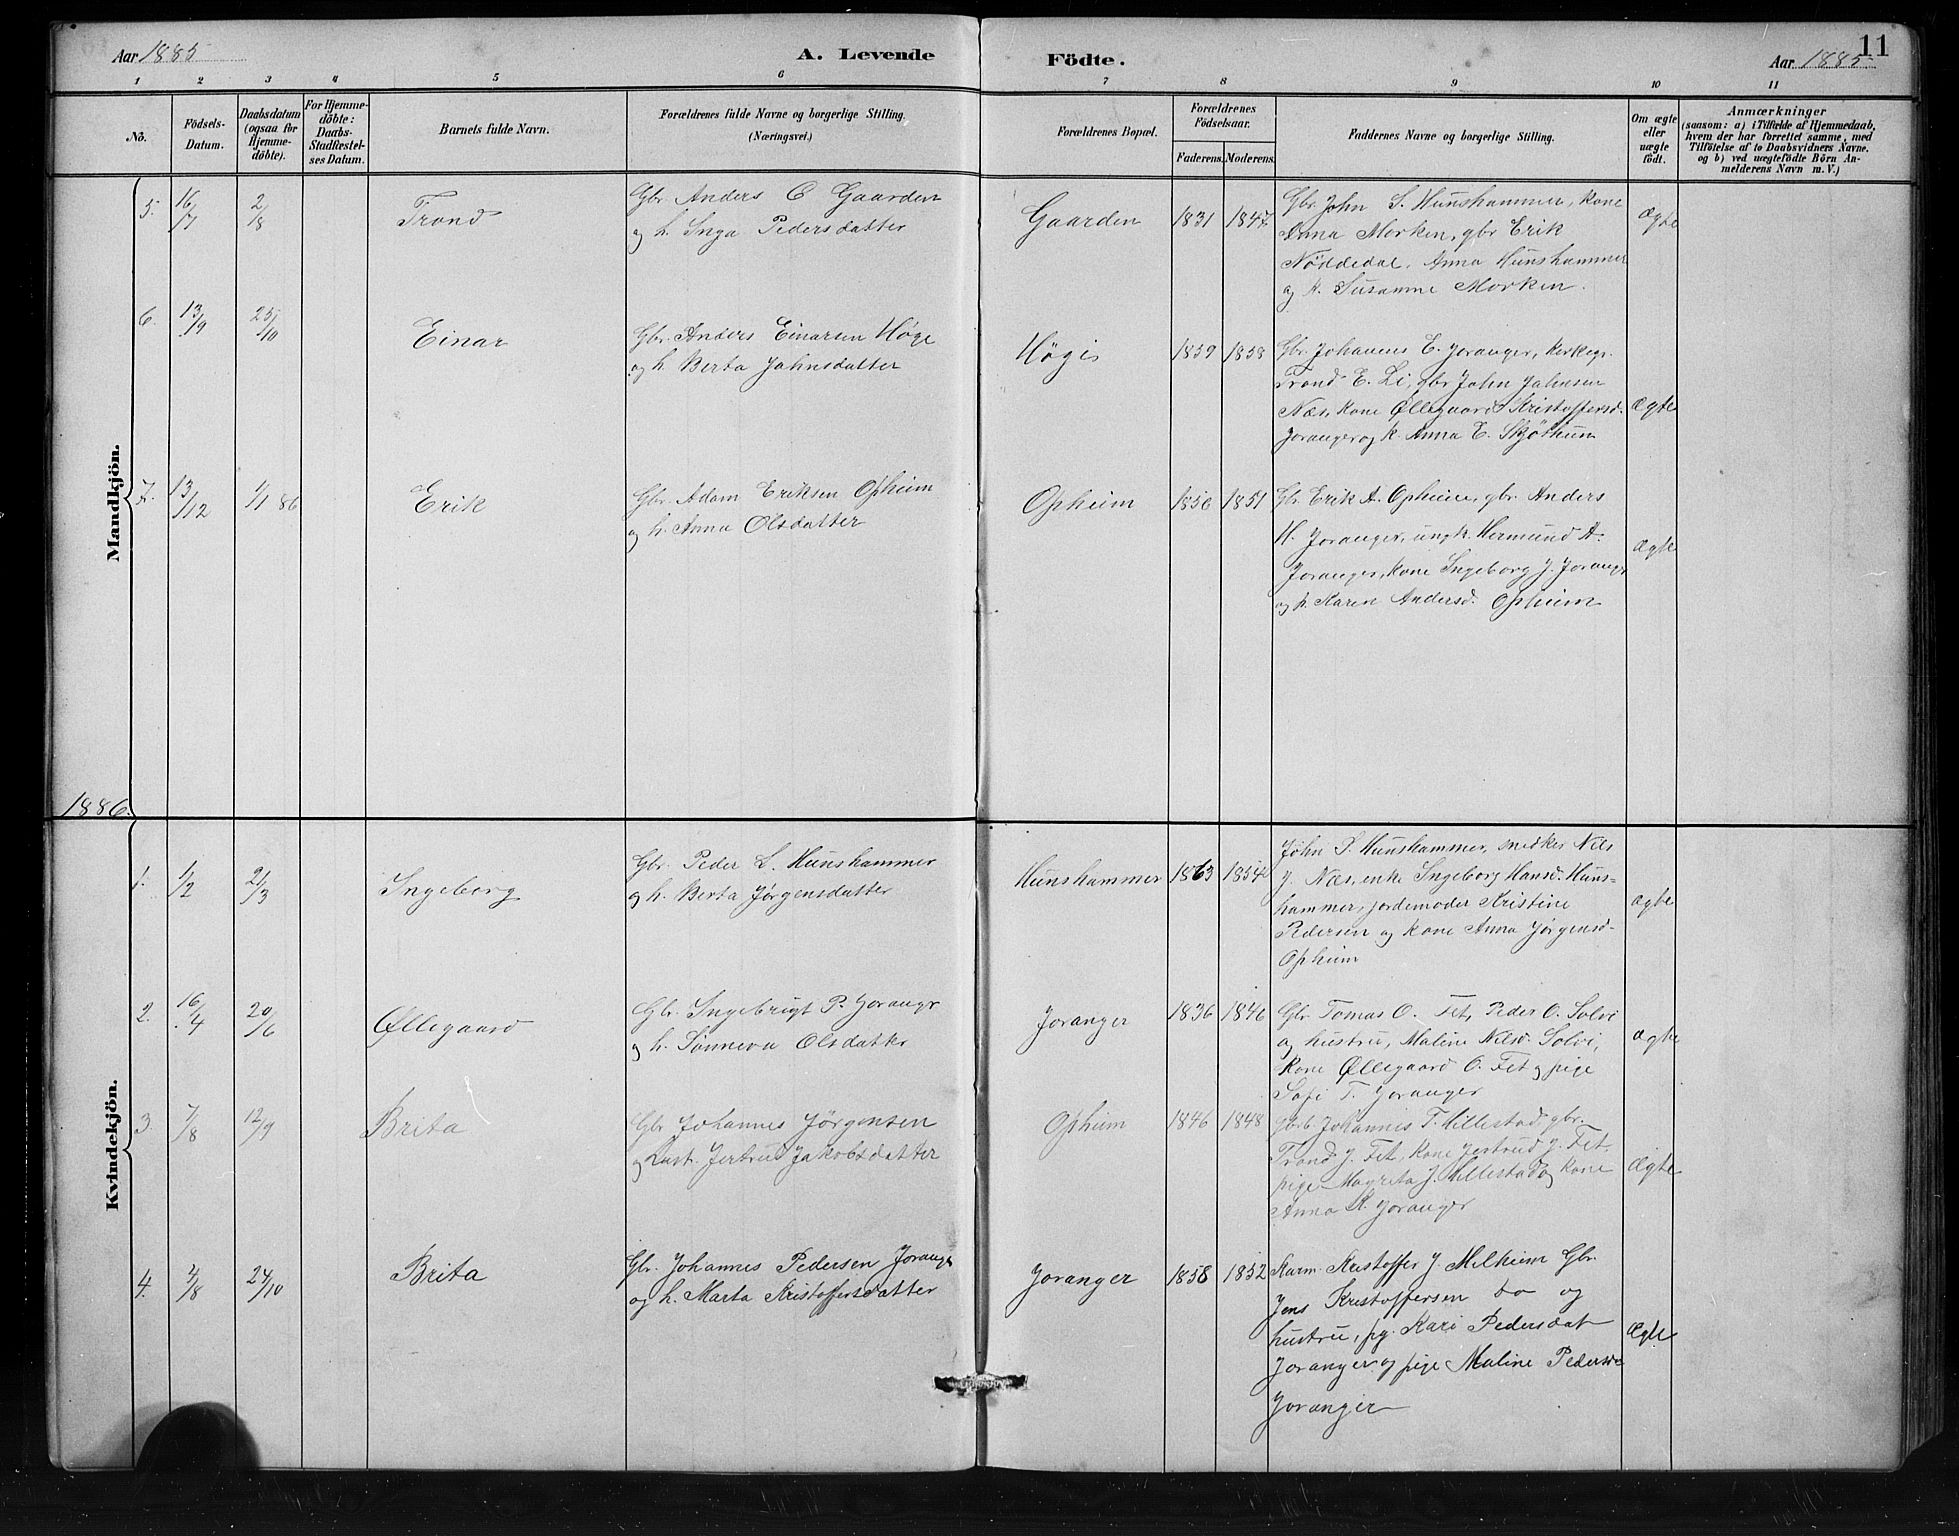 Aar 1885
A. Levende
Födte.
Aar 1885
11
1 2 3 4 5 6 7 8 9 10 11
No.
Födsels-
Datum.
Daabsdatum
(ogsaa for
Hjemme-
döbte).
For Hjemme-
döbte:
Daabs-
Stadfæstel-
ses Datum.
Barnets fulde Navn.
Forældrenes fulde Navne og borgerlige Stilling.
(Næringsvei.)
Forældrenes Bopæl.
Forældrenes
Födselsaar.
Faderens. Moderens.
Faddernes Navne og borgerlige Stilling.
Om ægte
eller
uægte
födt.
Anmærkninger
(saasom: a) i Tilfælde af Hjemmedaab,
hvem der har forrettet samme, med
Tilföielse af to Daabsvidners Navne.
og b) ved uægtefödte Börn An-
melderens Navn m. V.)
Mandkjön.
5. 16/7 2/8 Trond
Gbr. Anders C Gaarden
og h. Inga Pedersdatter
Gaarden 1831 1847
Gbr. John S. Hunshammer, kone
Anna Morken, gbr Erik
Nöddedal, Anna Hunshammer
og A. Susanne Morken.
Ægte
6. 13/9 25/10 Einar
Gbr. Anders Einarsen Høge
og h. Berta Jahnsdatter
Høgi 1859 1858
Gbr. Johannes E. Joranger, kirkegr.
Trond E. Li, gbr John Jahnsen
Næs, kone Øllegaard Kristoffersd.
Joranger og k. Anna E. Skjöthun
Ægte
7. 13/12 1/1 86 Erik
Gbr. Adam Eriksen Opheim
og h. Anna Olsdatter
Opheim 1850 1851
Gbr Erik A. Opheim, gbr. Anders
H. Joranger, ungk. Hermund A.
Joranger, kone Ingeborg J. Joranger
og h. Karen Andersd. Opheim
Ægte
1886.
Kvindekjön.
1. 1/2 21/3 Ingeborg
Gbr. Peder L. Hunshammer
og h. Berta Jørgensdatter
Hunshammer 1863 1854
John S. Hunshammer, snedker Nils
J. Næs, enke Ingeborg Hansd. Huns-
hammer, jordemoder Kristine
Pedersen og kone Anna Jørgensd-
Opheim
Ægte
2. 16/4 20/6 Øllegaard
Gbr. Ingebrigt P. Joranger
og h. Sønneva Olsdatter
Joranger 1836 1846
Gbr Tomas O. Fet, Peder O. Solvi
og hustru, Maline Nilsd. Solvi,
kone Øllegaard O. Fet og pige
Sofi T. Joranger
Ægte
3. 7/8 12/9 Brita
Gbr Johannes Jörgensen
og hust. Jertrud Jakobsdatter
Opheim 1846 1848
gbr. Johannes T. Hillestad gbr.
Trond J. Fet, kone Jertrud J. Fet,
pige Magreta J. Hillestad og kone
Anna K. Joranger
Ægte
4. 4/8 24/10 Brita
Gbr. Johannes Pedersen Joranger
og h. Marta Kristoffersdatter
Joranger 1858 1852
Kaarm. Kristoffer J. Melheim Gbr.
Jens Kristoffersen do og
hustru, pg. Kari Pedersdat
Joranger og pige Maline Pedersd
Joranger
Ægte